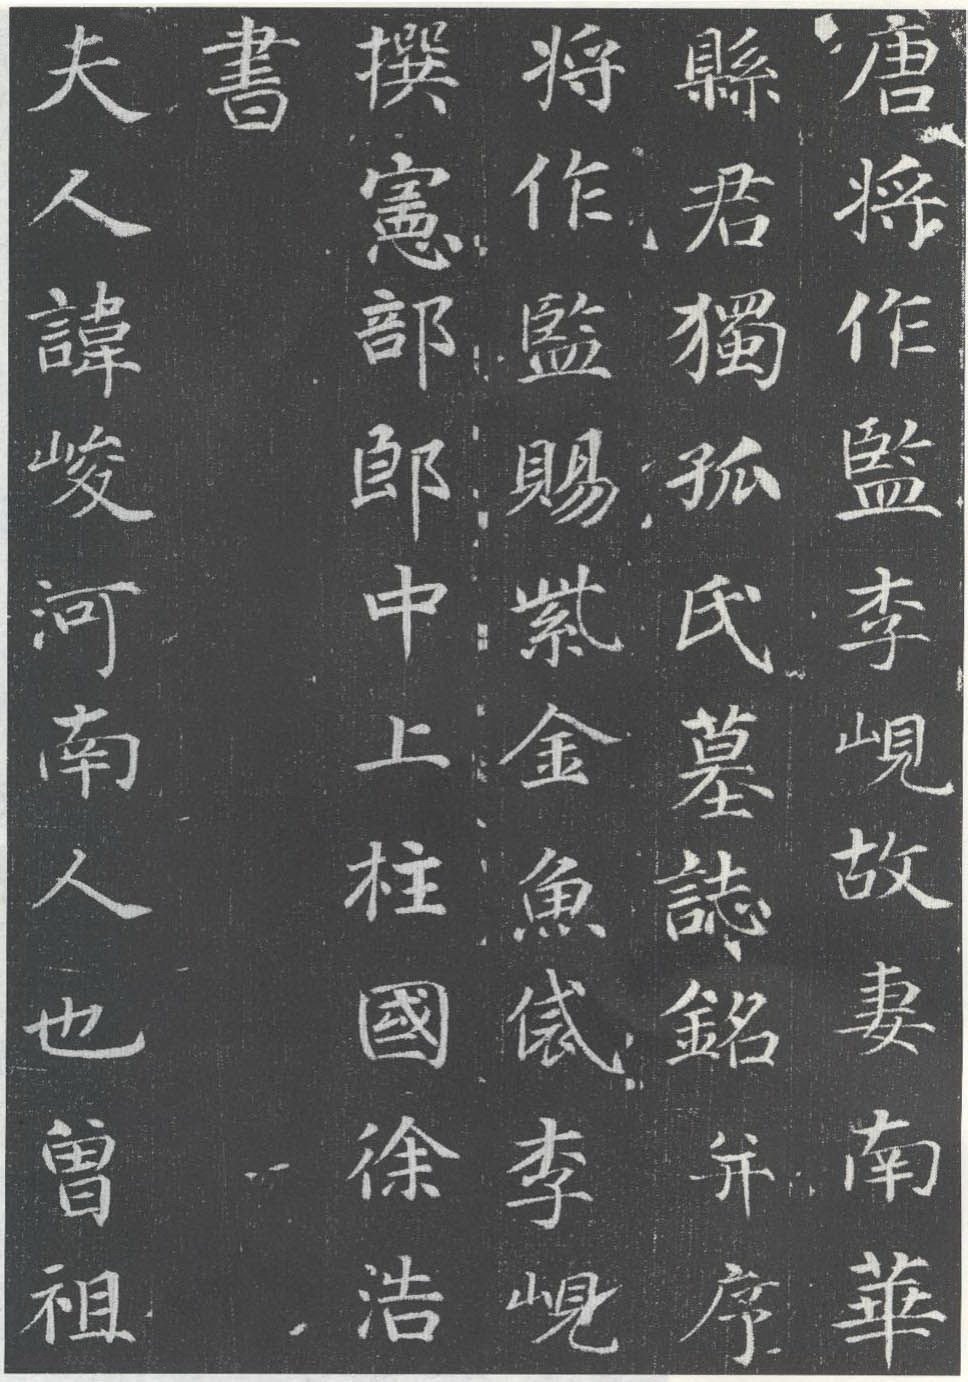 唐将作監李峴故妻南華
縣君獨孤氏墓誌銘并序
将作監賜紫金魚袋李峴
撰憲部郎中上柱國徐浩
書
夫人諱峻河南人也曽祖